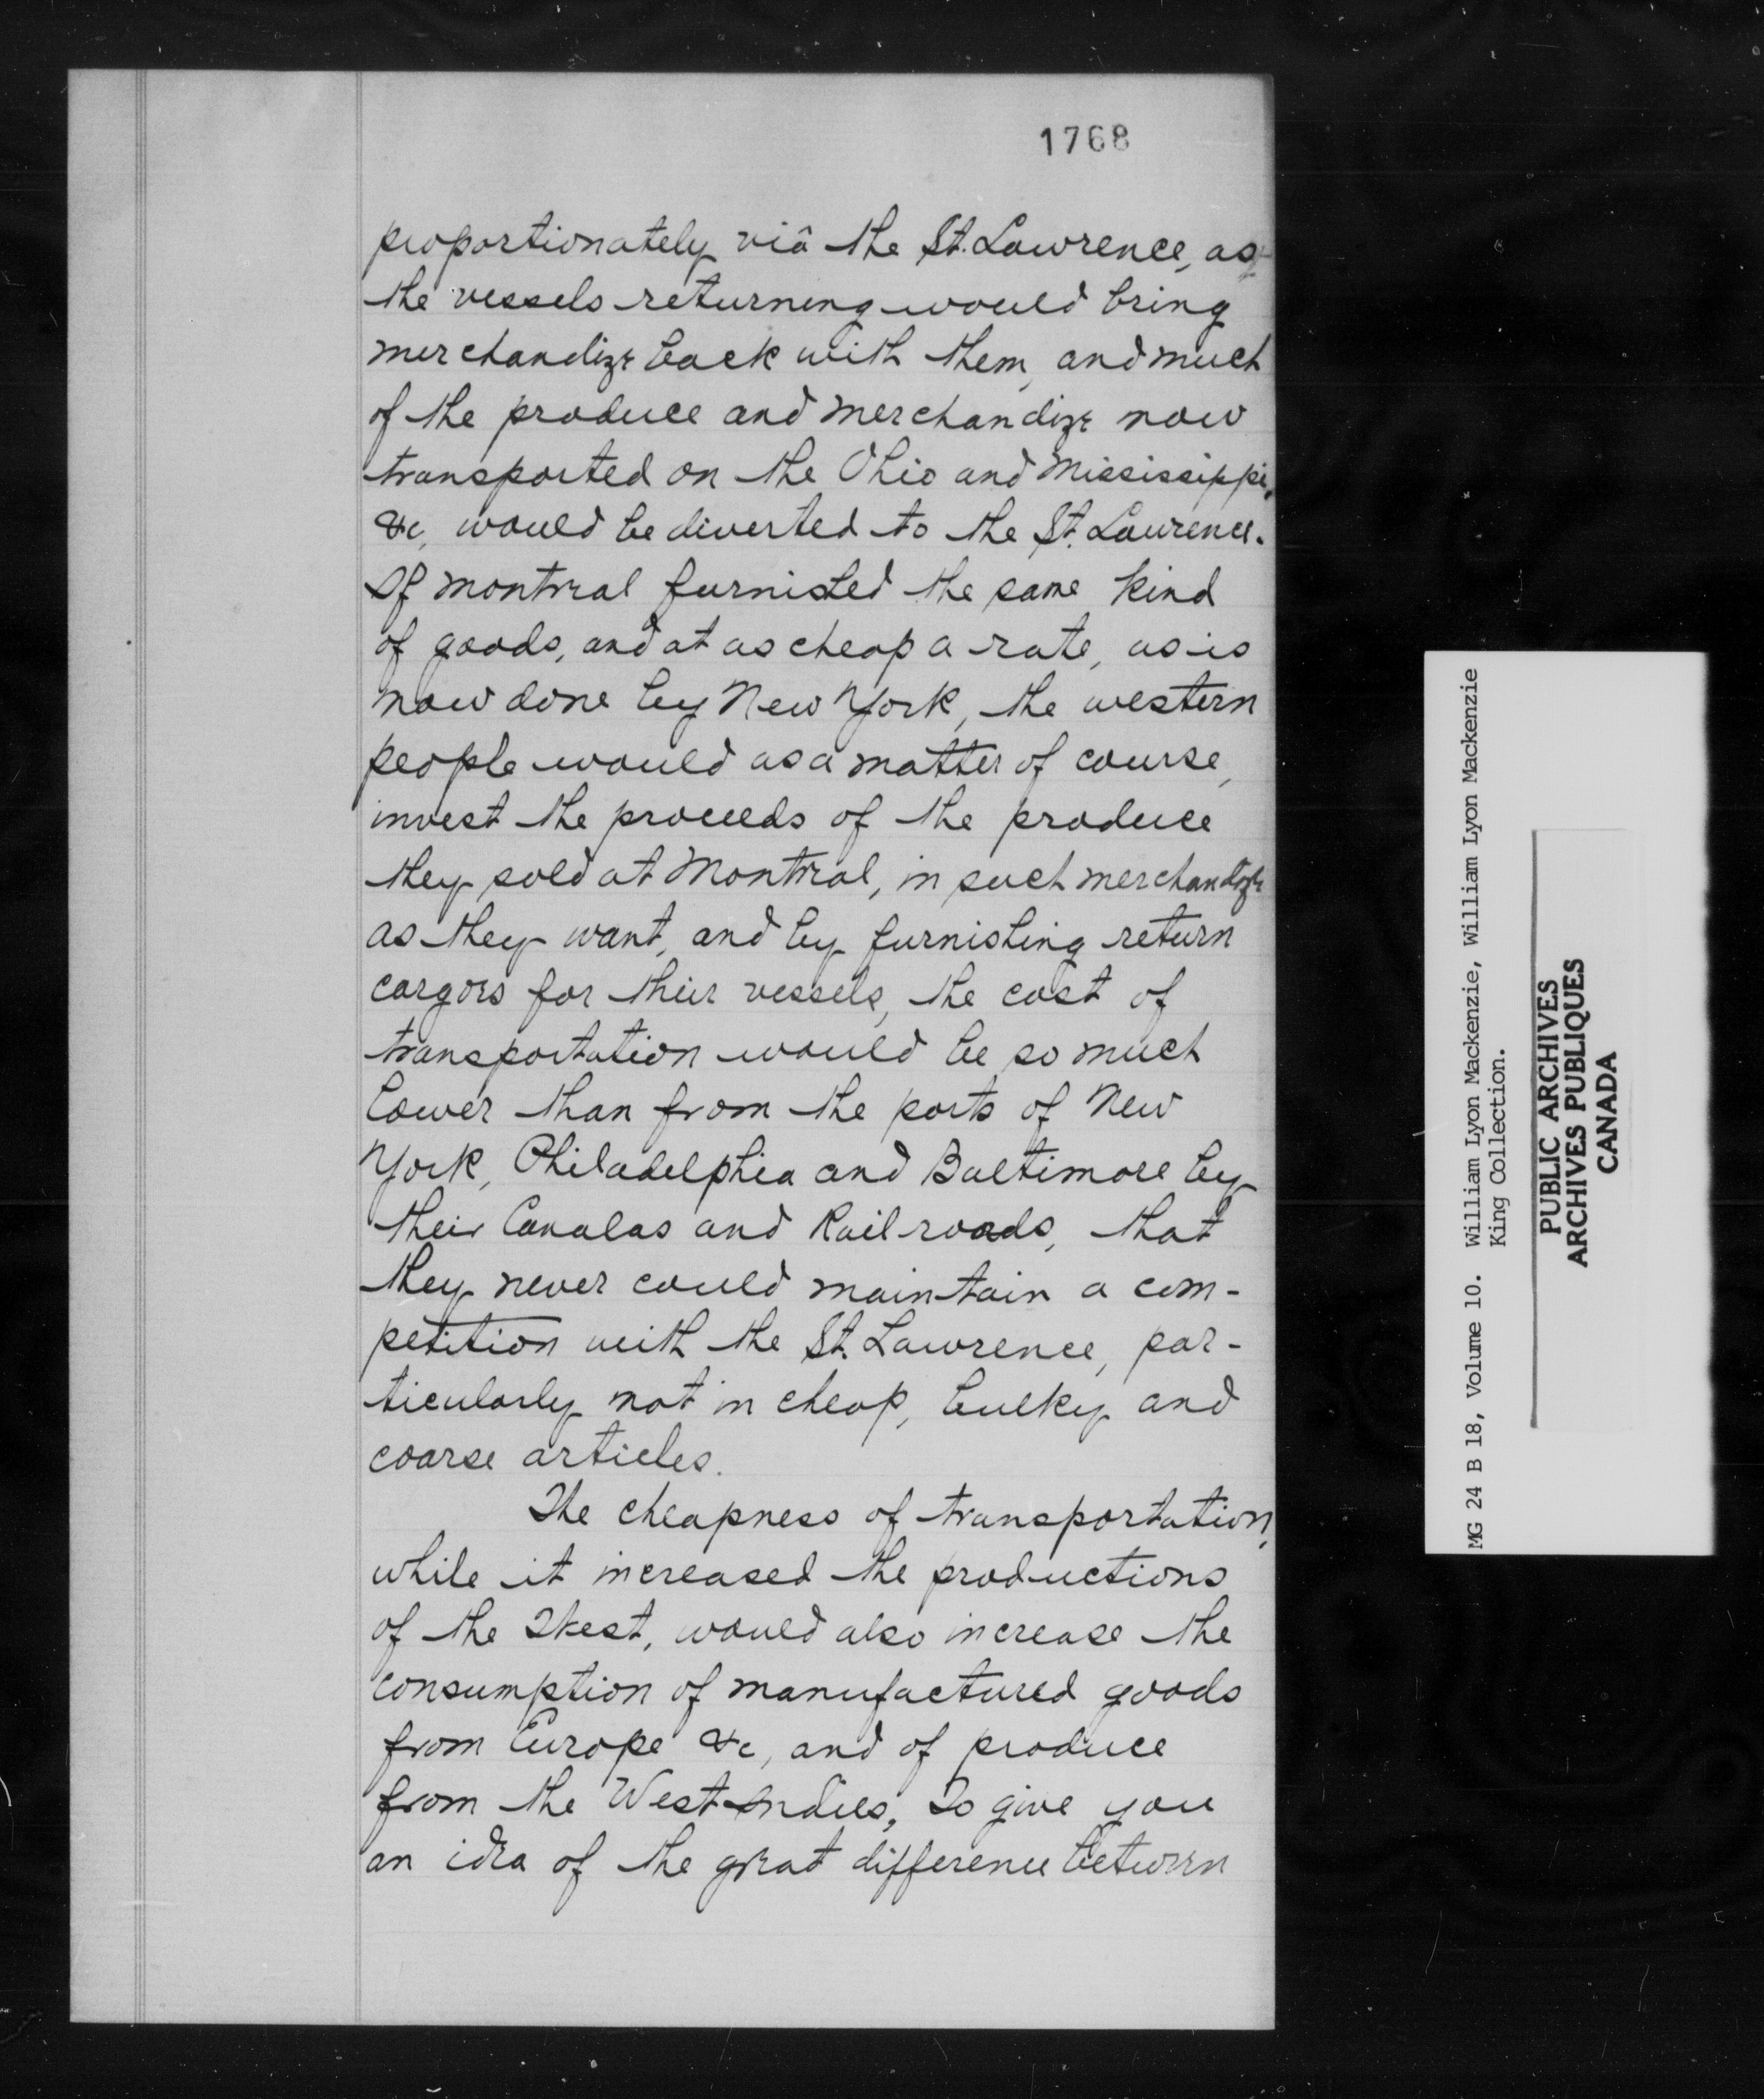 1768
proportionately viâ the St. Lawrence, as
the vessels returning would bring
merchandize back with them, and much
of the produce and merchandize now
transported on the Ohio and Mississippi,
&c, would be diverted to the St. Lawrence.
If Montreal furnished the same kind
of goods, and at as cheap a rate, as is
now done by New York, the western
people would as a matter of course,
invest the proceeds of the produce
they sold at Montreal, in such merchandize
as they want, and by furnishing return
cargoes for their vessels, the cost of
transportation would be so much
lower than from the ports of New
York, Philadelphia and Baltimore by
their Canalas and Railroads, that
they never could maintain a com-
petition with the St. Lawrence, par-
ticularly not in cheap, bulky and
coarse articles.
The cheapness of transportation,
while it increased the productions
of the West, would also increase the
consumption of manufactured goods
from Europe &c, and of produce
from the West Indies, To give you
an idea of the great difference between
MG 24 B 18, Volume 10. William Lyon Mackenzie, William Lyon Mackenzie
King Collection.
PUBLIC ARCHIVES
ARCHIVES PUBLIQUES
CANADA